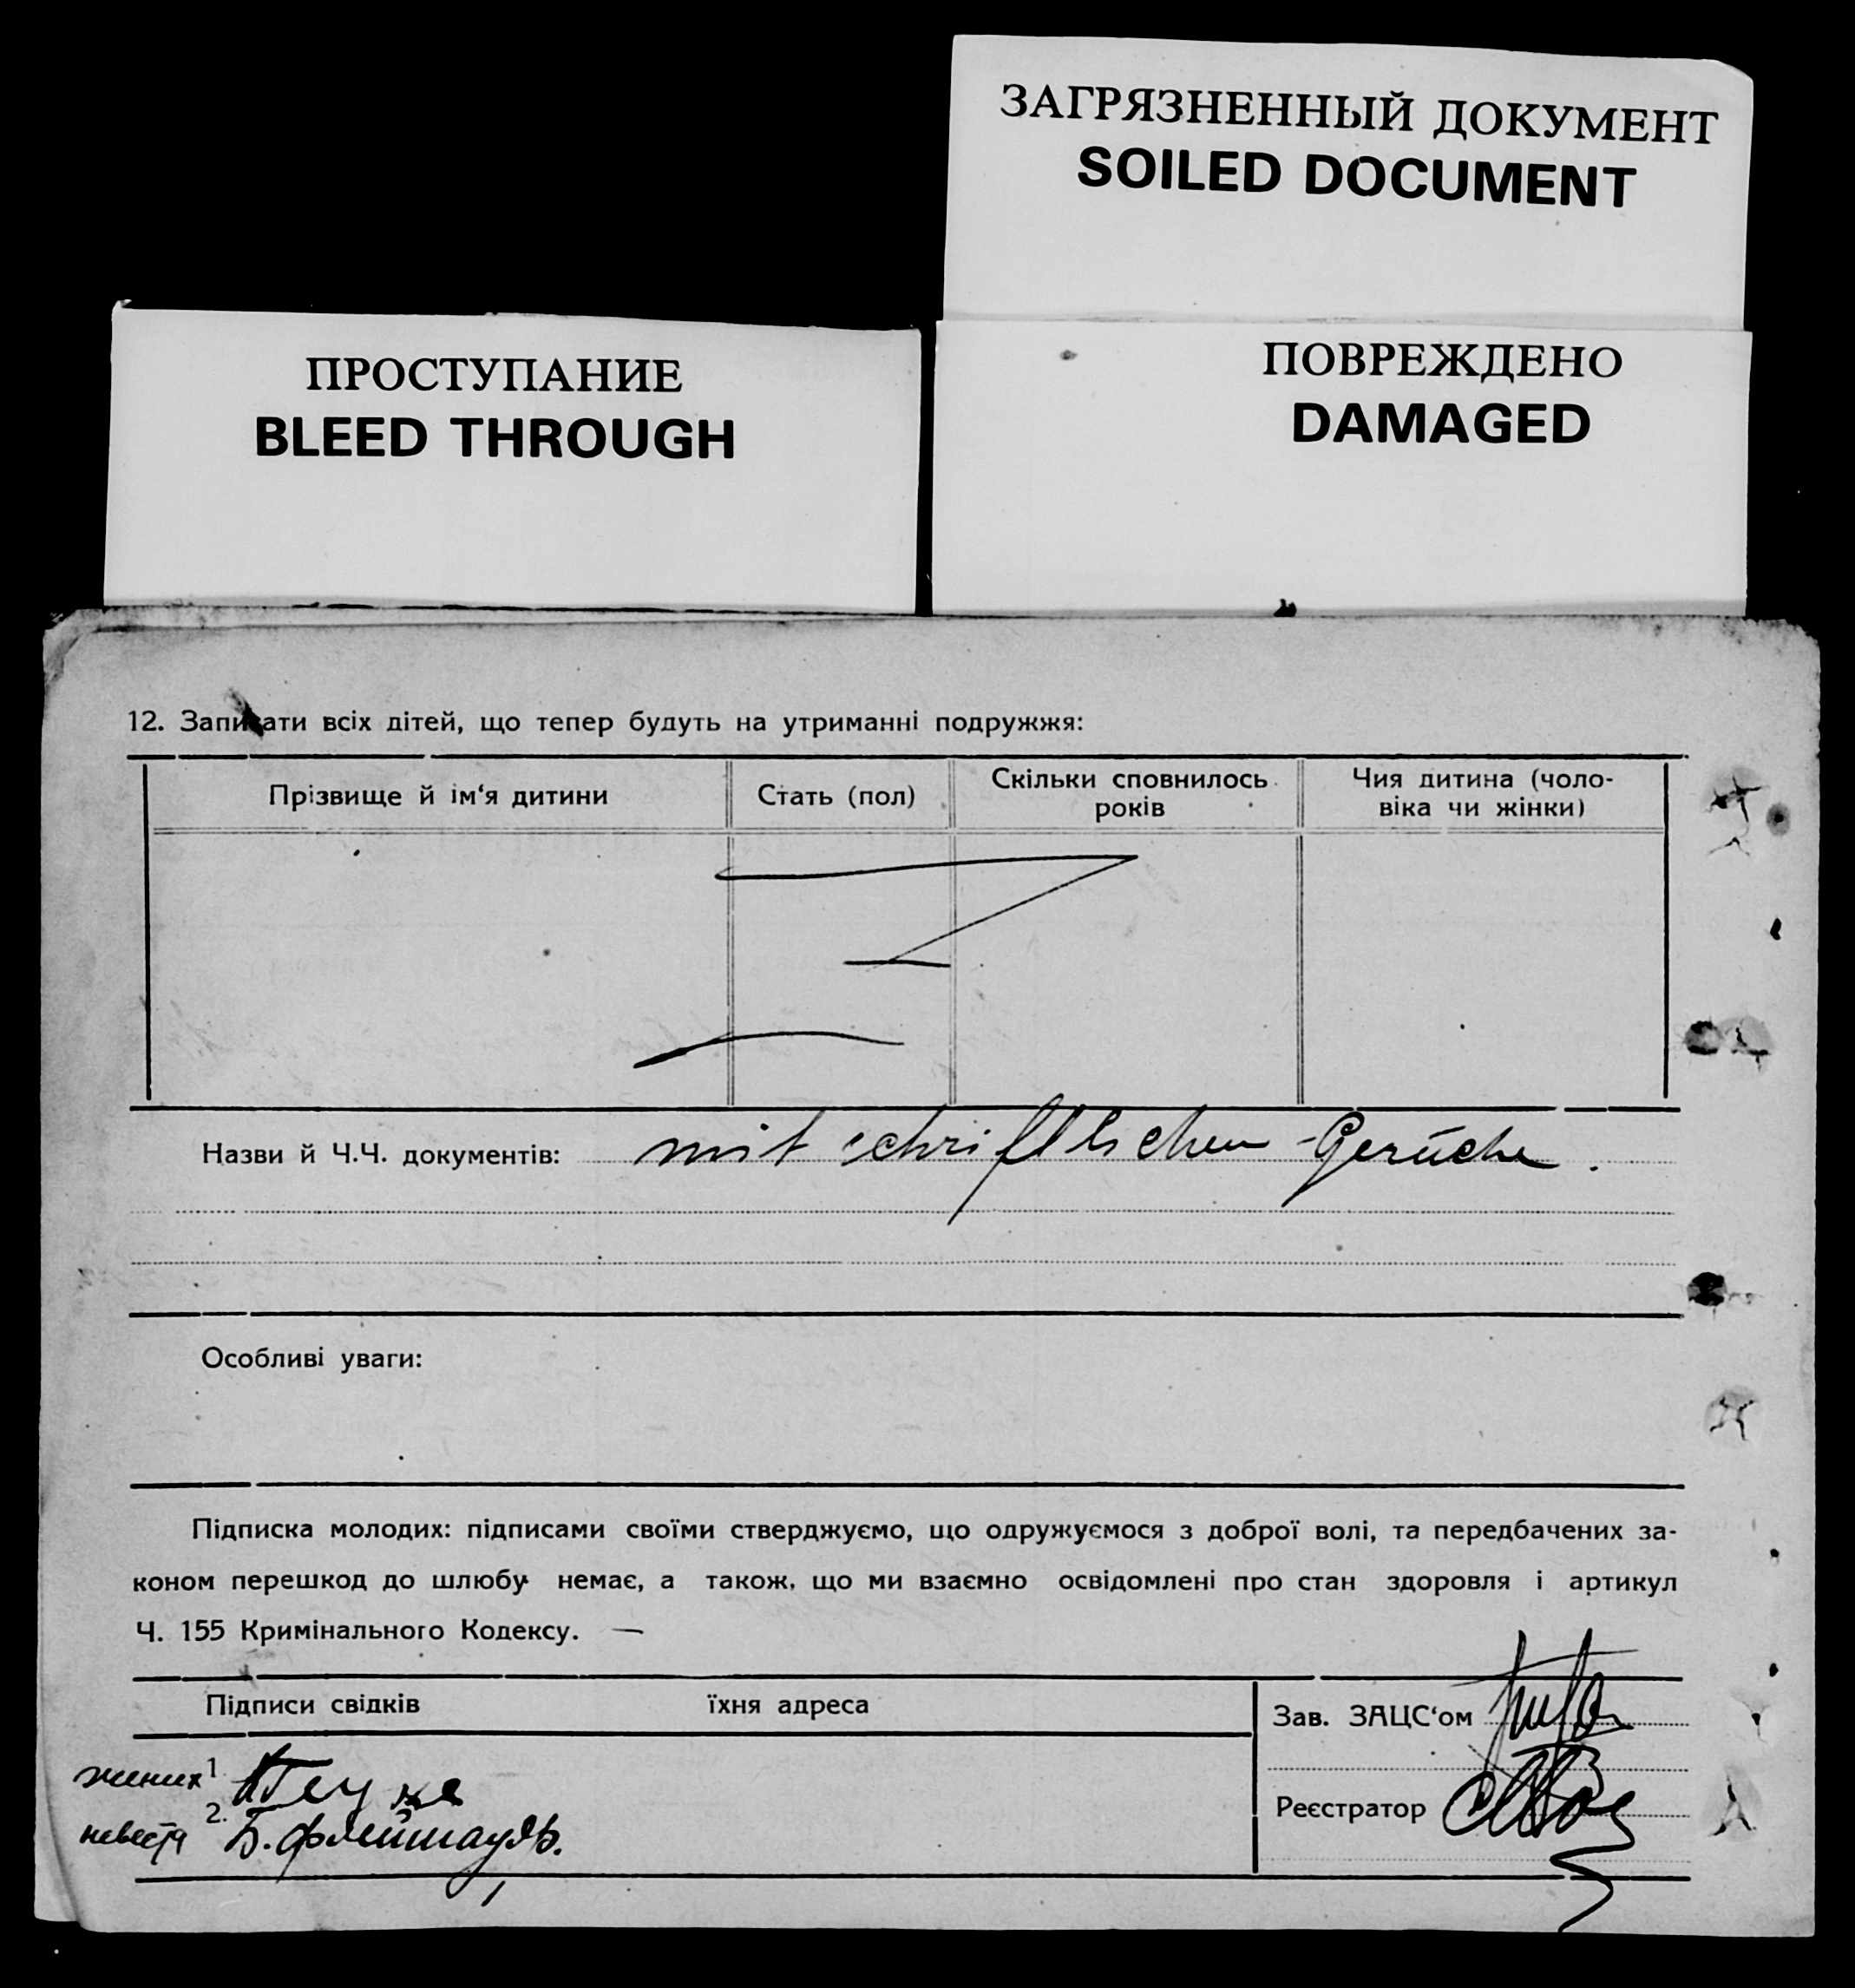 ЗАГРЯЗНЕННЫЙ ДОКУМЕНТ
SOILED DOCUMENT
ПРОСТУПАНИЕ
BLEED THROUGH
ПОВРЕЖДЕНО
DAMAGED
12. Записати всіх дітей, що тепер будуть на утриманні подружжя:
Прізвище й ім‘я дитини
Стать (пол)
Скільки сповнилось
років
Чия дитина (чоло-
віка чи жінки)
Назви й Ч.Ч. документів: mit schriftlichen Gerüche.
Особливі уваги:
Підписка молодих: підписами своїми стверджуємо, що одружуємося з доброї волі, та передбачених за-
коном перешкод до шлюбу немає, а також, що ми взаємно освідомлені про стан здоровля і артикул
Ч. 155 Кримінального Кодексу. —
Підписи свідків їхня адреса
Зав. ЗАЦС‘ом
жених 1.
невеста 2. Б. Флейшауль.
Реєстратор